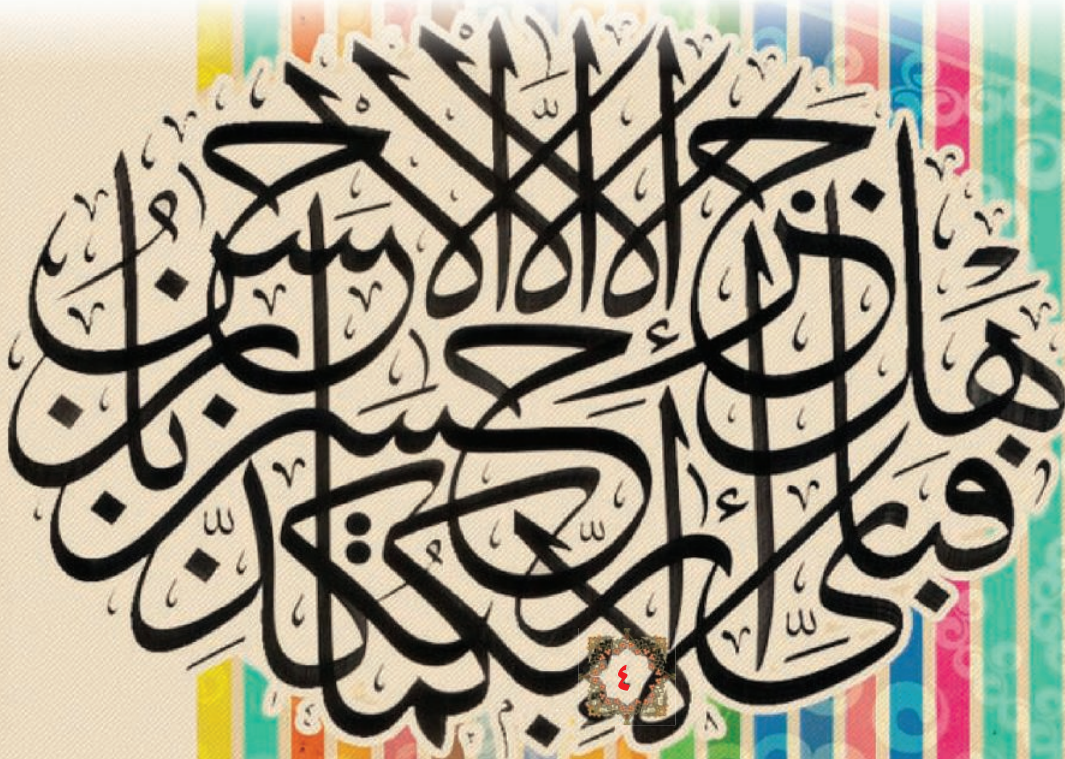 هل جزاء الإحسان إلا الإحسان
فبأي آلاء ربكما تكذبان
٤